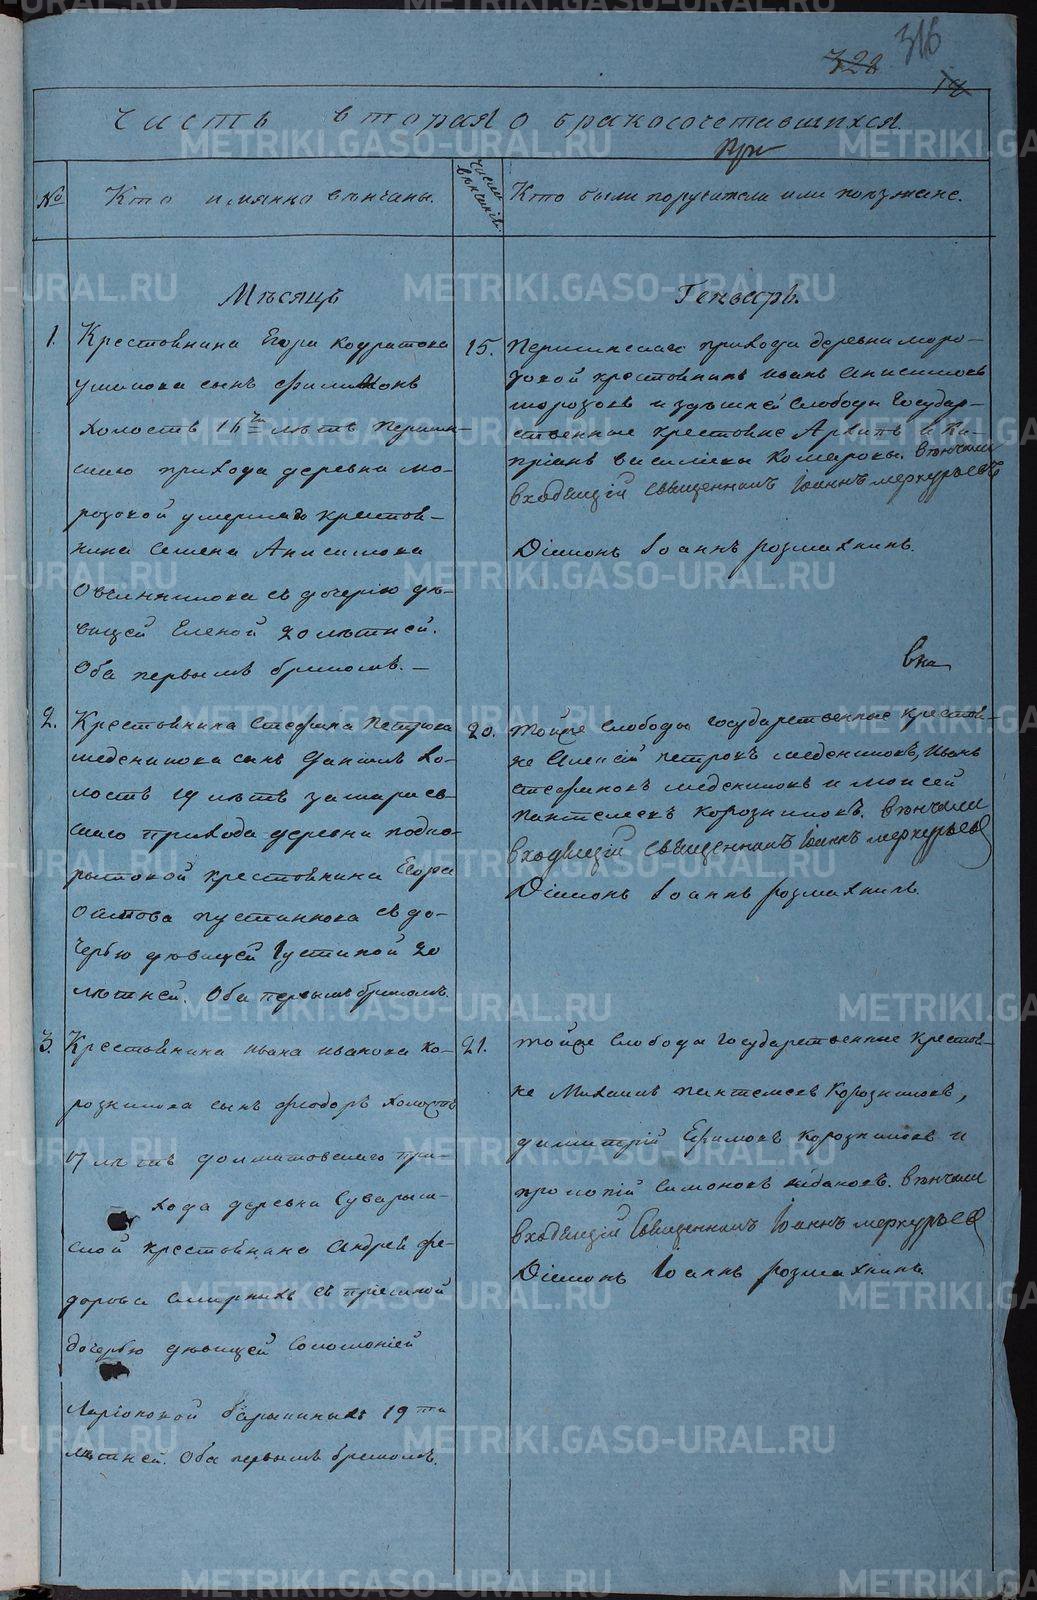 316
328
18
Часть вторая о бракосочетавшихся
При
№
Кто имянно вѣнчаны.
Число вѣнчанія.
Кто были поручители или поѣзжане.
Мѣсяцъ
Генварь.
1.
Крестьянина Егора Кодратова
сынъ Филимонъ
холостъ 16ти лѣтъ Першин-
скаго прихода деревни Мо-
розовой умершаго крестья-
нина Семена Анисимова
Овчинникова съ дочерію дѣ-
вицей Еленой 20 лѣтней.
Оба первымъ бракомъ. —
15.
Першинскаго прихода деревни Моро-
зовой крестьянинъ Иванъ Анисимовъ
Морозовъ и здѣшней слободы Государ-
ственные крестьяне Архипъ и Ки-
пріянъ Васильевы Комаровы. Вѣнчали
входящій Священникъ Іоаннъ Меркурьевъ
Діаконъ Іоаннъ Розмахнинъ.
2.
Крестьянина Стефана Петрова
Меденцова сынъ Даніилъ хо-
лостъ 19 лѣтъ Замараев-
скаго прихода деревни Подко-
рытовой крестьянина Егора
Пустынникова съ до-
черью дѣвицей Іустиной 20
лѣтней. Оба первымъ бракомъ.
20.
Тойже Слободы Государственные крестья-
не Алексій Петровъ Меденцовъ, Иванъ
Стефановъ Меденцовъ и Моисей
Пантелеевъ Коровниковъ. Вѣнчали
входящій Священникъ Іоаннъ Меркурьевъ
Діаконъ Іоаннъ Розмахнинъ.
3.
Крестьянина Ивана Иванова Ко-
ровникова сынъ Феодоръ холостъ
17 лѣтъ Долматовскаго при-
хода деревни Суварыш-
ской крестьянина Андрея Фе-
дорова Смирныхъ съ пріемной
дочерью дѣвицей Соломоніей
Ларіоновой 19ти
лѣтней. Оба первымъ бракомъ.
21.
Тойже Слободы Государственные крестья-
не Михаилъ Пантелеевъ Коровниковъ,
Димитрій Ефимовъ Коровниковъ и
Прокопій Симоновъ Вѣнчали
входящій Священникъ Іоаннъ Меркурьевъ
Діаконъ Іоаннъ Розмахнинъ.
METRIKI.GASO-URAL.RU